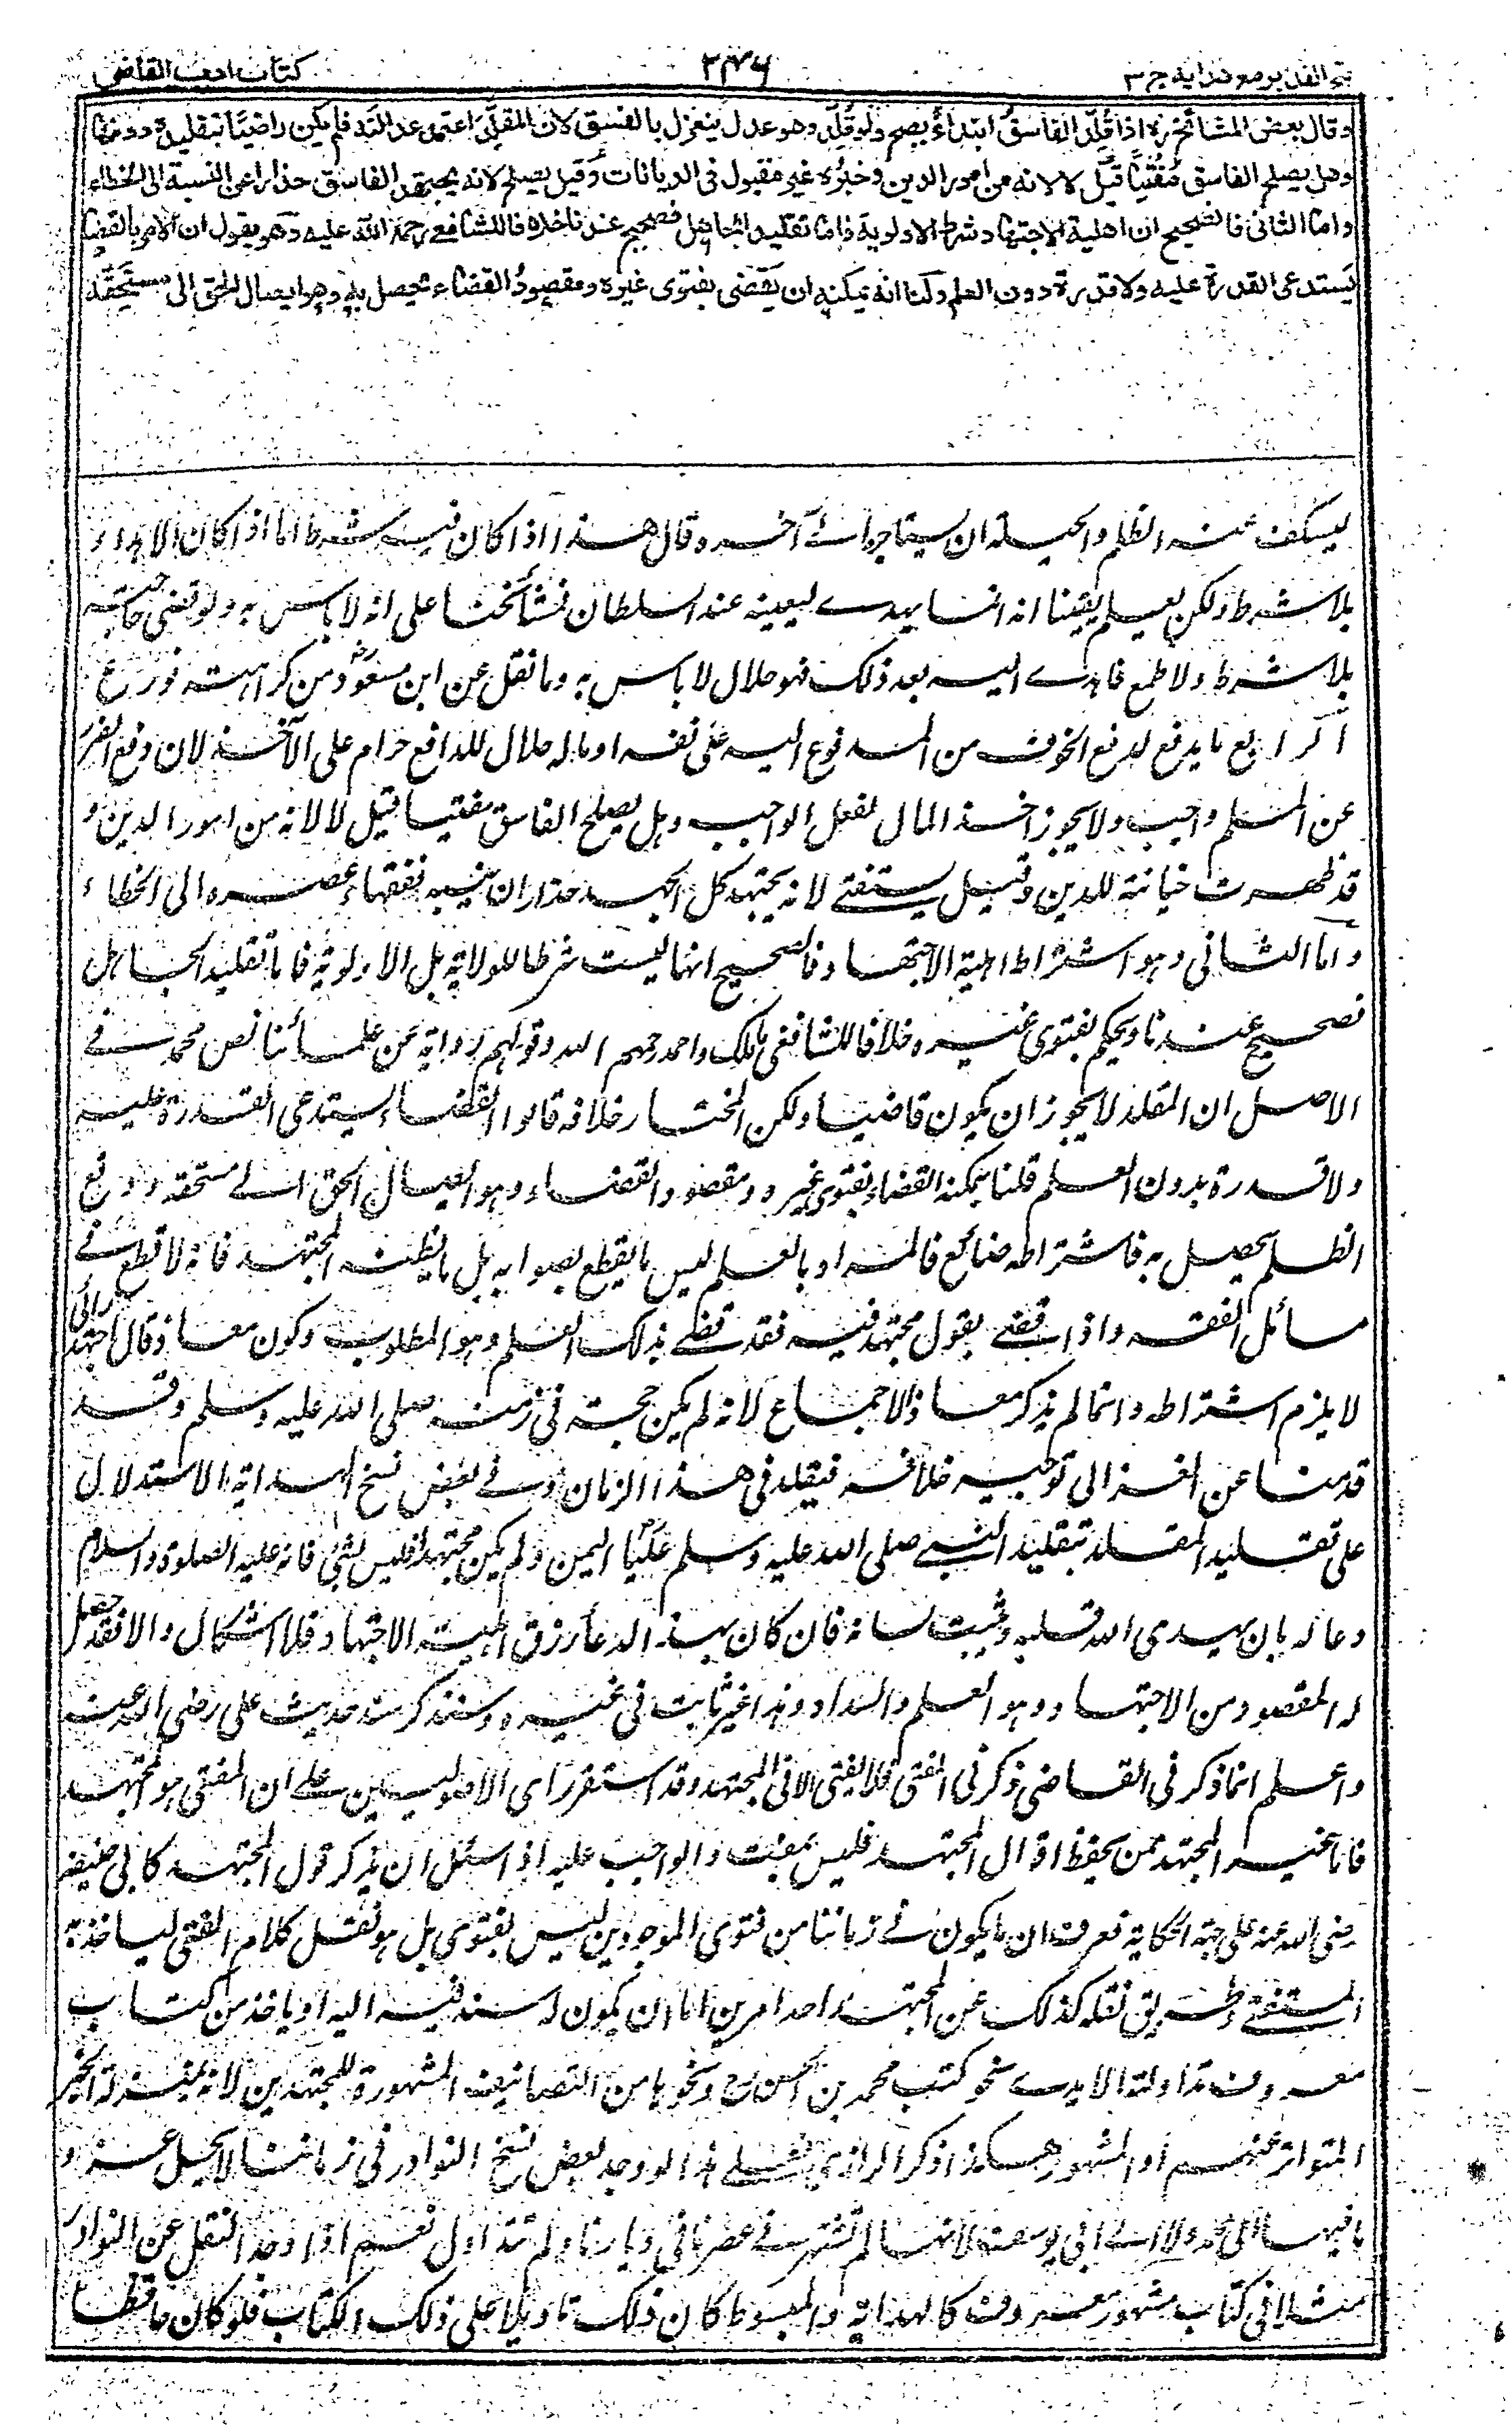 فتح القدير مع هدايه ج ٣ ٣٤٦ كتاب ادب القاضي
وقال بعض المشائخ رح اذا قُلِّد الفاسق ابتداءً يصح ولو قُلِّد وهو عدل ينعزل بالفسق لان المقلِّد اعتمد عدالته فلم يكن راضيًا بتقليده دونها
وهل يصلح الفاسق مُفتيًا قيل لا لانه من امور الدين وخبرُه غير مقبول فى الديانات وقيل يصلح لانه يجتهد الفاسق حذارا عن النسبة الى الخطاء
واما الثانى فالصحيح ان اهلية الاجتهاد شرط الاولوية فاما تقليد الجاهل فصحيح عندنا خلافا للشافعى رحمة الله عليه وهو يقول ان الامر بالقضاء
يستدعى القدرة عليه ولا قدرة دون العلم ولنا انه يمكنه ان يقضى بفتوى غيره ومقصودُ القضاء يحصل به وهو ايصال الحق الى مستحقه
ليكف عنه الظلم والحيلة ان يستاجره الى آخره وقال هذا اذا كان فيه شرط اما اذا كان الاهداء
بلا شرط ولكن يعلم يقينا انه انما يهدى ليعينه عند السلطان فمشائخنا على انه لا باس به ولو قضى حاجته
بلا شرط ولا طمع فاهدى اليه بعد ذلك فهو حلال لا باس به وما نقل عن ابن مسعود رض من كراهته فورع
الرابع ما يدفع لدفع الخوف من المدفوع اليه على نفسه او ماله حلال للدافع حرام على الآخذ لان دفع الضرر
عن المسلم واجب ولا يجوز اخذ المال لفعل الواجب وهل يصلح الفاسق مفتيا قيل لا لانه من امور الدين و
قد ظهرت خيانته للدين وقيل يستفتى لانه يجتهد كل الجهد حذار ان ينسبه فقهاء عصره الى الخطاء
واما الثانى وهو اشتراط اهلية الاجتهاد فالصحيح انها ليست شرطا للولاية بل الاولوية فاما تقليد الجاهل
فصحيح عندنا ويحكم بفتوى غيره خلافا للشافعى ومالك واحمد رحمهم الله وقولهم رواية عن علمائنا نص محمد فى
الاصل ان المقلد لا يجوز ان يكون قاضيا ولكن المختار خلافه قالوا القضاء يستدعى القدرة عليه
ولا قدرة بدون العلم قلنا يمكنه القضاء بفتوى غيره ومقصود القضاء وهو ايصال الحق الى مستحقه ودفع
الظلم يحصل به فاشتراطه ضائع فالمراد بالعلم ليس ما يقطع بصوابه بل ما يظنه المجتهد فانه لا قطع فى
مسائل الفقه واذا قضى بقول مجتهد فيه فقد قضى بذلك العلم وهو المطلوب وكون معاذ قال اجتهد رائى
لا يلزم اشتراطه وانما لم يذكر معاذ الاجماع لانه لم يكن حجة فى زمنه صلى الله عليه وسلم وقد
قدمنا عن الغزالى توجيه خلافه فيقلد فى هذا الزمان وفى بعض نسخ الهداية الاستدلال
على تقليد المقلد بتقليد النبى صلى الله عليه وسلم عليًا اليمن ولم يكن مجتهدا فليس بشئ فانه عليه الصلوة والسلام
دعا له بان يهدى الله قلبه ويثبت لسانه فان كان بهذا الدعاء رزق اهلية الاجتهاد فلا اشكال والا فقد حصل
له المقصود من الاجتهاد وهو العلم والسداد وهذا غير ثابت فى غيره وسنذكر سند حديث على رضى الله عنه
واعلم ان ما ذكر فى القاضى ذكر فى المفتى فلا يفتى الا المجتهد وقد استقر راى الاصوليين على ان المفتى هو المجتهد
فاما غير المجتهد ممن يحفظ اقوال المجتهد فليس بمفت والواجب عليه اذا سئل ان يذكر قول المجتهد كابى حنيفة
رضى الله عنه على جهة الحكاية فعرف ان ما يكون فى زماننا من فتوى الموجودين ليس بفتوى بل هو نقل كلام المفتى لياخذ به
المستفتى وطريق نقله كذلك عن المجتهد احد امرين اما ان يكون له سند فيه اليه او ياخذ من كتاب
معروف تداولته الايدى نحو كتب محمد بن الحسن رح ونحوها من التصانيف المشهورة للمجتهدين لانه بمنزلة الخبر
المتواتر عنهم او المشهور هكذا ذكر الرازى فعلى هذا لو وجد بعض نسخ النوادر فى زماننا لا يحل عزو
ما فيها الى محمد ولا الى ابى يوسف لانها لم تشتهر فى عصرنا فى ديارنا ولم تتداول نعم اذا وجد النقل عن النوادر
مثلا فى كتاب مشهور معروف كالهداية والمبسوط كان ذلك تاويلا على ذلك الكتاب فلو كان حافظا